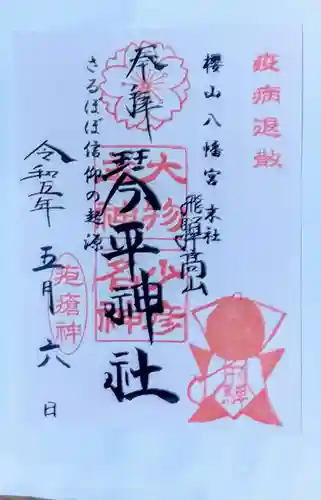 疫病退散
櫻山八幡宮 末社
飛騨高山
奉拝
琴平神社
さるぼぼ信仰の起源
疱瘡神
令和五年 五月 六日